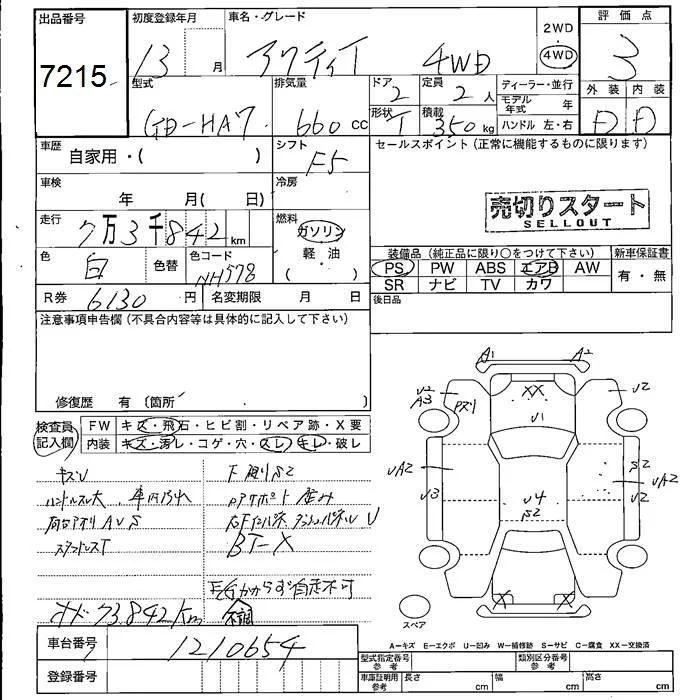 出品番号 初度登録年月 車名・グレード 2WD 評価点
7215 13 月 アクティT 4WD 4WD 3
型式 排気量 ドア 定員 ディーラー・並行 外装 内装
2 2人 モデル年式 年
GD-HA7 660cc 形状 T 積載 350kg ハンドル 左・右 D D
車歴 自家用・( ) シフト F5 セールスポイント (正常に機能するものに限ります)
車検 年 月( 日) 冷房
売切りスタート
SELLOUT
走行 7万3千842km 燃料 ガソリン
軽・油
( )
装備品 (純正品に限り○をつけて下さい) 新車保証書
色 白 色替 色コード NH578 PS PW ABS エアB AW 有・無
SR ナビ TV カワ
R券 6130円 名変期限 月 日 後日品
注意事項申告欄 (不具合内容等は具体的に記入して下さい)
修復歴 有 〔箇所 〕
検査員記入欄 FW キズ・飛石・ヒビ割・リペア跡・X要
内装 キズ・汚レ・コゲ・穴・スレ・キレ・破レ
キズU 下廻りS2
ハンドルスレ大
荷台アオリAUS
BT-X
自走不可
メーター73,842Km 不調
A1 A2
U2 A3 XX U2
U1
UA2 S2 UA2
U3 U4 U2
S2
X X
スペア
A−キズ E−エクボ U−凹み W−補修跡 S−サビ C−腐食 XX−交換済
車台番号 1210654
型式指定番号 参考 類別区分番号 参考
登録番号 車庫証明用 参考 長さ cm 幅 cm 高さ cm